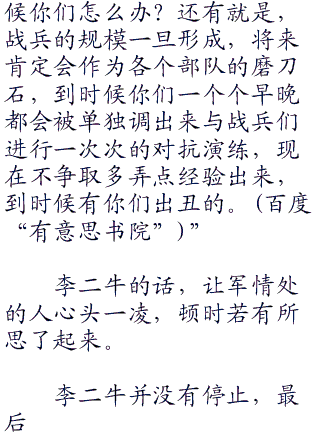 候你们怎么办？还有就是，
战兵的规模一旦形成，将来
肯定会作为各个部队的磨刀
石，到时候你们一个个早晚
都会被单独调出来与战兵们
进行一次次的对抗演练，现
在不争取多弄点经验出来，
到时候有你们出丑的。(百度
“有意思书院”)”
李二牛的话，让军情处
的人心头一凌，顿时若有所
思了起来。
李二牛并没有停止，最
后